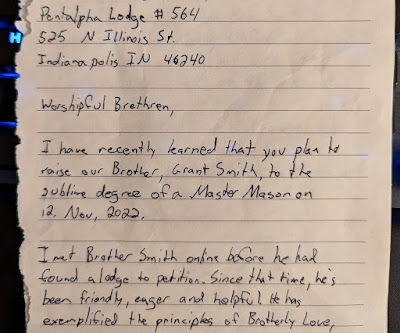 Pentalpha Lodge # 564
525 N Illinois St.
Indianapolis IN 46240
Worshipful Brethren,
I have recently learned that you plan to
raise our Brother, Grant Smith, to the
sublime degree of a Master Mason on
12. Nov, 2022.
I met Brother Smith online before he had
found a lodge to petition. Since that time, he's
been friendly, eager and helpful. He has
exemplified the principles of Brotherly Love,